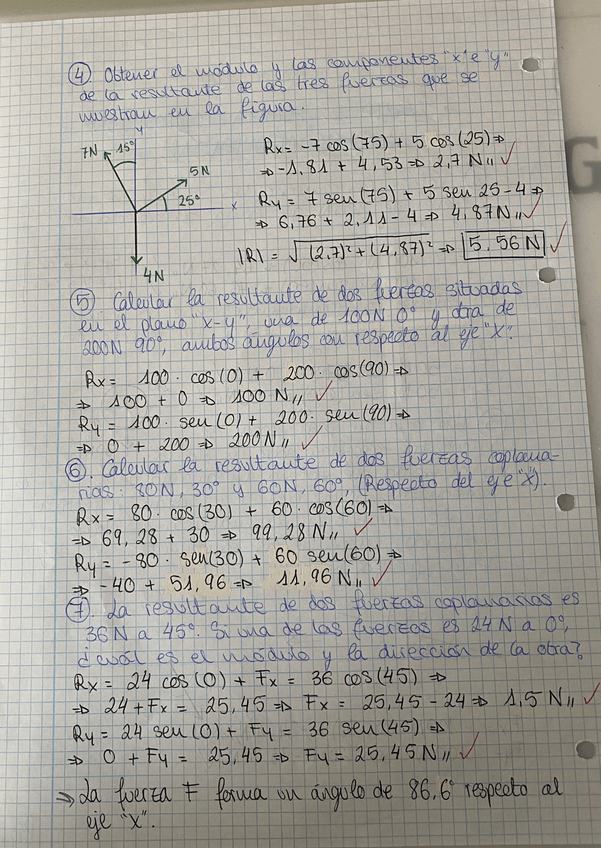 ④ Obtener el módulo y las componentes "x" e "y"
de la resultante de las tres fuerzas que se
muestran en la figura.
y
7N 15°
5N
25°
x
4N
Rx = -7 cos(75) + 5 cos(25) ⇒
⇒ -1,81 + 4,53 ⇒ 2,7 N,, ✓
Ry = 7 sen(75) + 5 sen 25 - 4 ⇒
⇒ 6,76 + 2,11 - 4 ⇒ 4,87N,, ✓
|R| = √(2,7)² + (4,87)² ⇒ 5,56 N ✓
⑤ Calcular la resultante de dos fuerzas situadas
en el plano "x-y", una de 100N 0° y otra de
200N 90°, ambos ángulos con respecto al eje "x".
Rx = 100 · cos(0) + 200 · cos(90) ⇒
⇒ 100 + 0 ⇒ 100 N,, ✓
Ry = 100 · sen(0) + 200 · sen(90) ⇒
⇒ 0 + 200 ⇒ 200N,, ✓
⑥. Calcular la resultante de dos fuerzas coplana-
rias: 80N, 30° y 60N, 60°, (Respecto del eje "x").
Rx = 80 · cos(30) + 60 · cos(60) ⇒
⇒ 69,28 + 30 ⇒ 99,28 N,, ✓
Ry = -80 · sen(30) + 60 sen(60) ⇒
⇒ -40 + 51,96 ⇒ 11,96 N,, ✓
⑦. La resultante de dos fuerzas coplanarias es
36N a 45°. Si una de las fuerzas es 24N a 0°,
¿cuál es el módulo y la dirección de la otra?
Rx = 24 cos(0) + Fx = 36 cos(45) ⇒
⇒ 24 + Fx = 25,45 ⇒ Fx = 25,45 - 24 ⇒ 1,5 N,, ✓
Ry = 24 sen(0) + Fy = 36 sen(45) ⇒
⇒ 0 + Fy = 25,45 ⇒ Fy = 25,45 N,, ✓
⇒ La fuerza F forma un ángulo de 86,6° respecto al
eje "x".
G